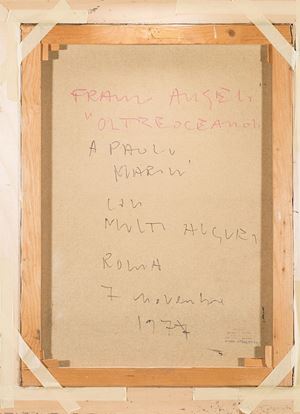 FRANCO ANGELI
"OLTREOCEANO"
A PAOLO
MARIN
CON
MOLTI AUGURI
ROMA
7 novembre
1977